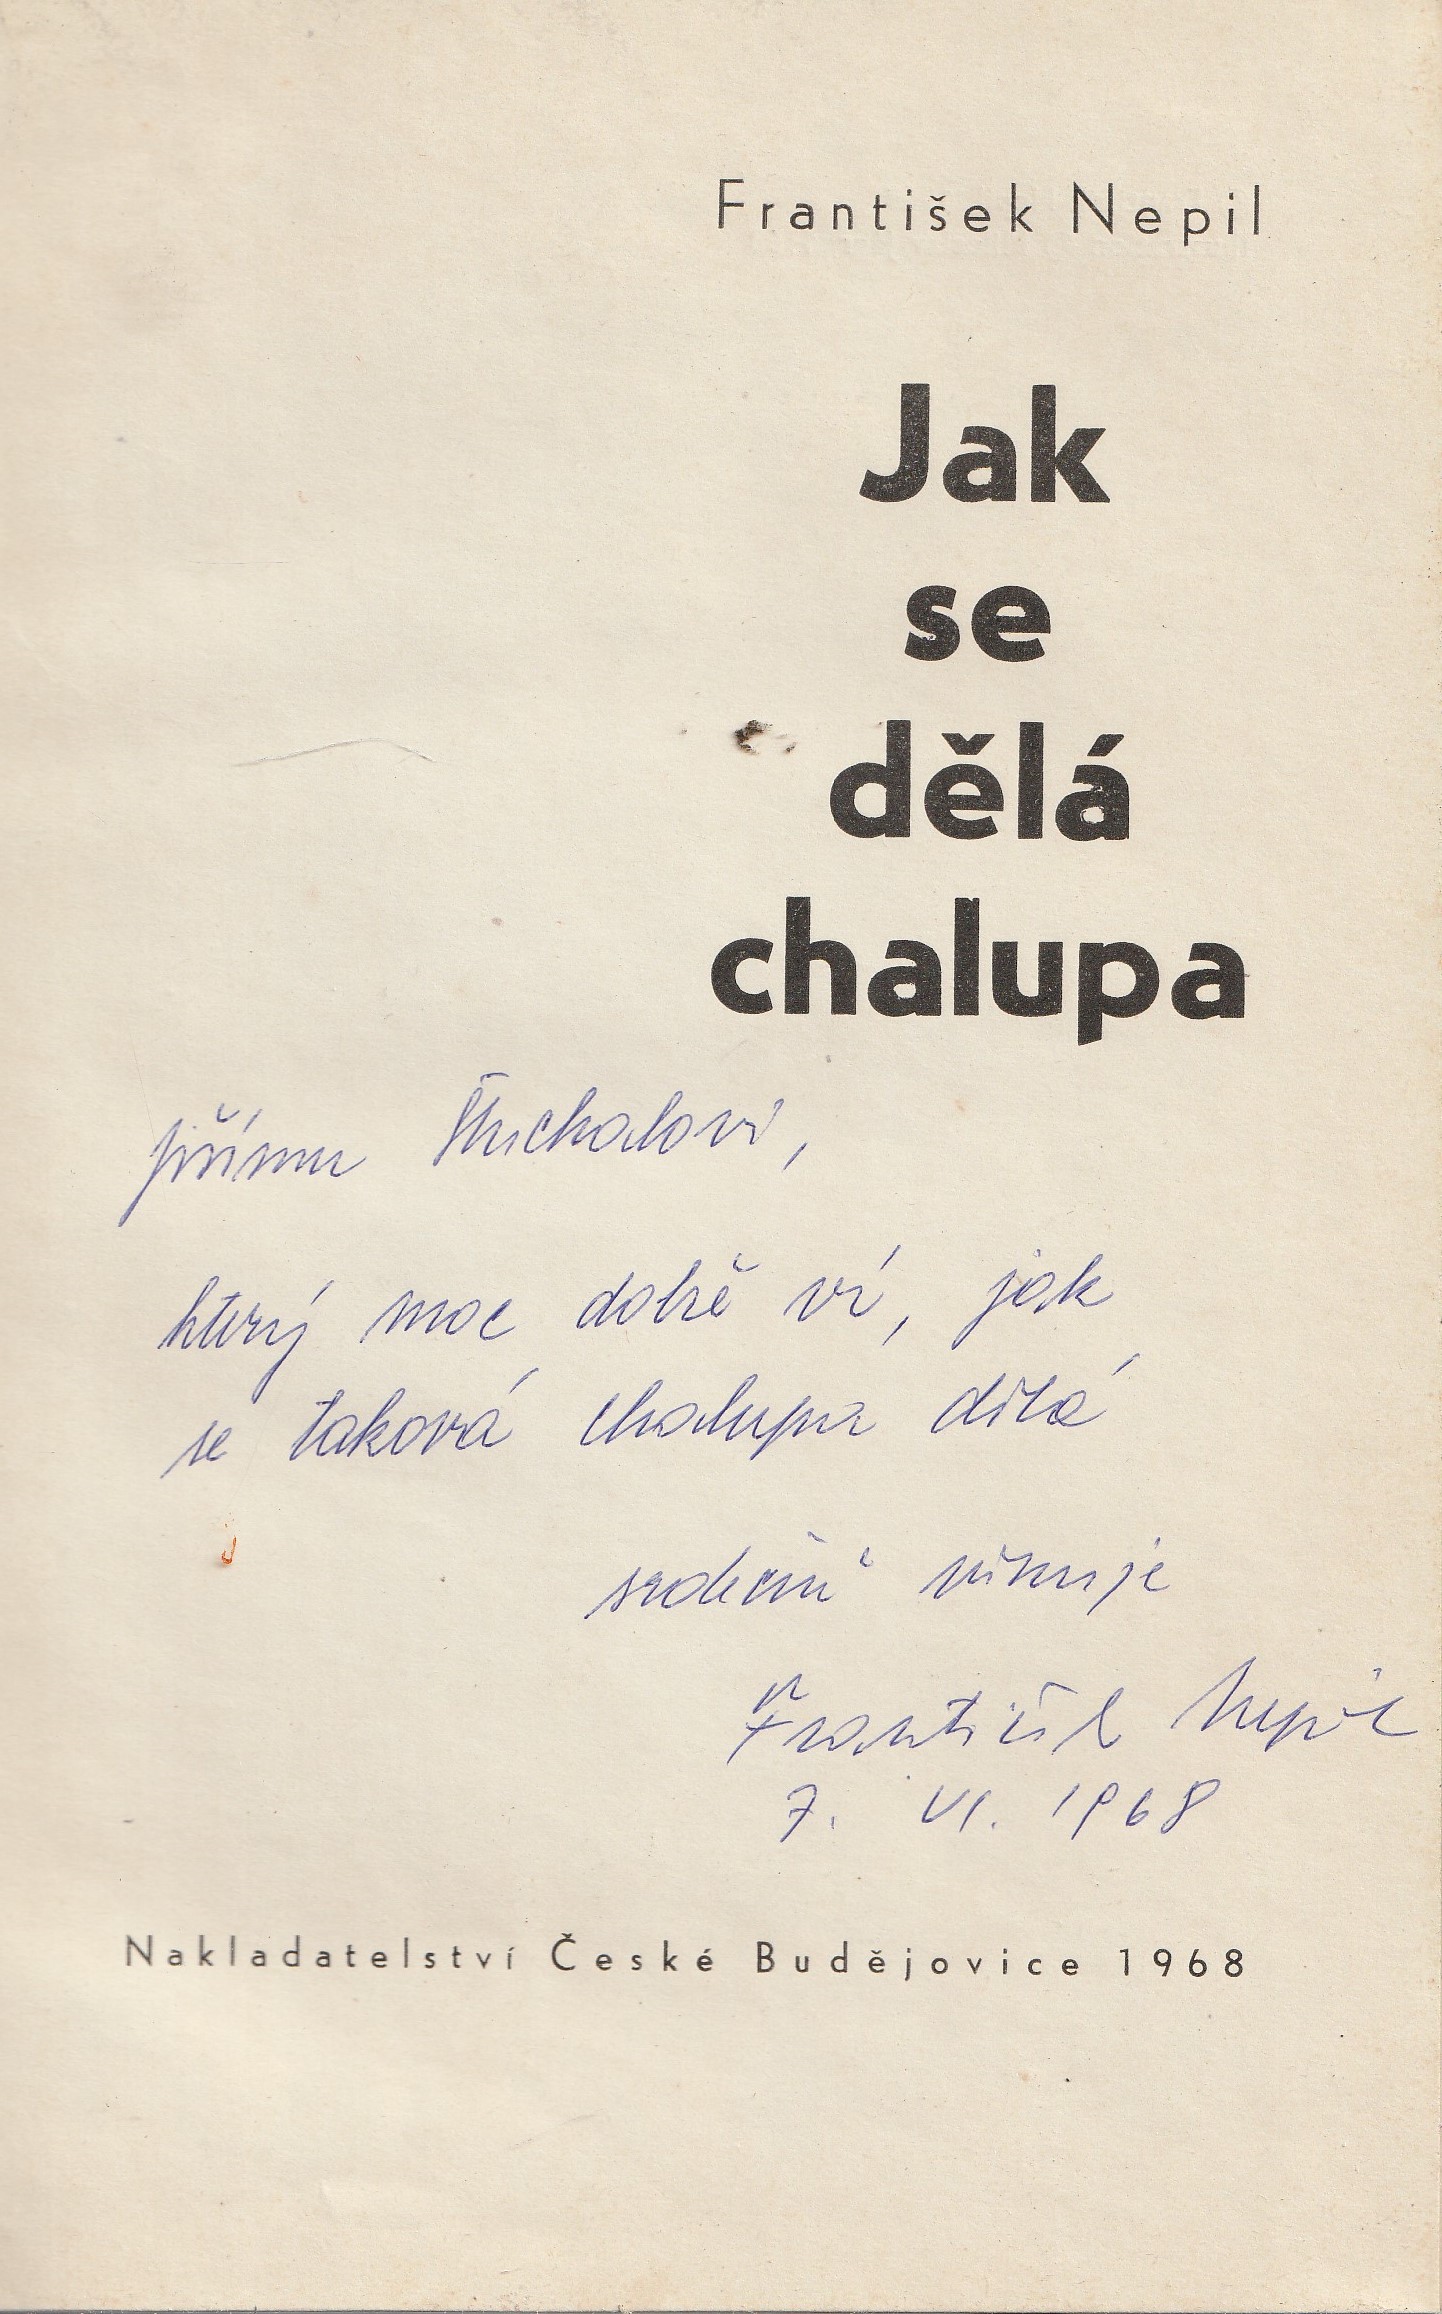 František Nepil
Jak
se
dělá
chalupa
Jiřímu Stuchalovi,
který moc dobře ví, jak
se taková chalupa dělá
srdečně věnuje
František Nepil
7. VI. 1968
Nakladatelství České Budějovice 1968